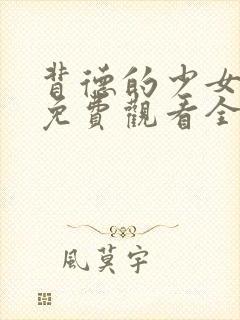 背德的少女
免費觀看全
風莫宇